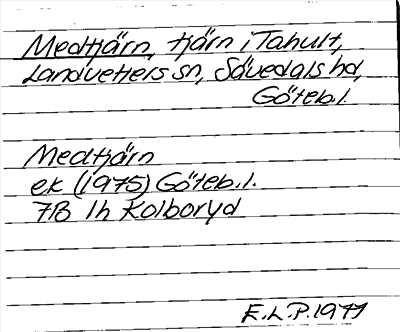 Medtjärn, tjärn i Tahult,
Landvetters sn, Sävedals hd,
Göteb.l.
Medtjärn
ek (1975) Göteb.l.
7B 1h Kolboryd
E.L.P. 1977